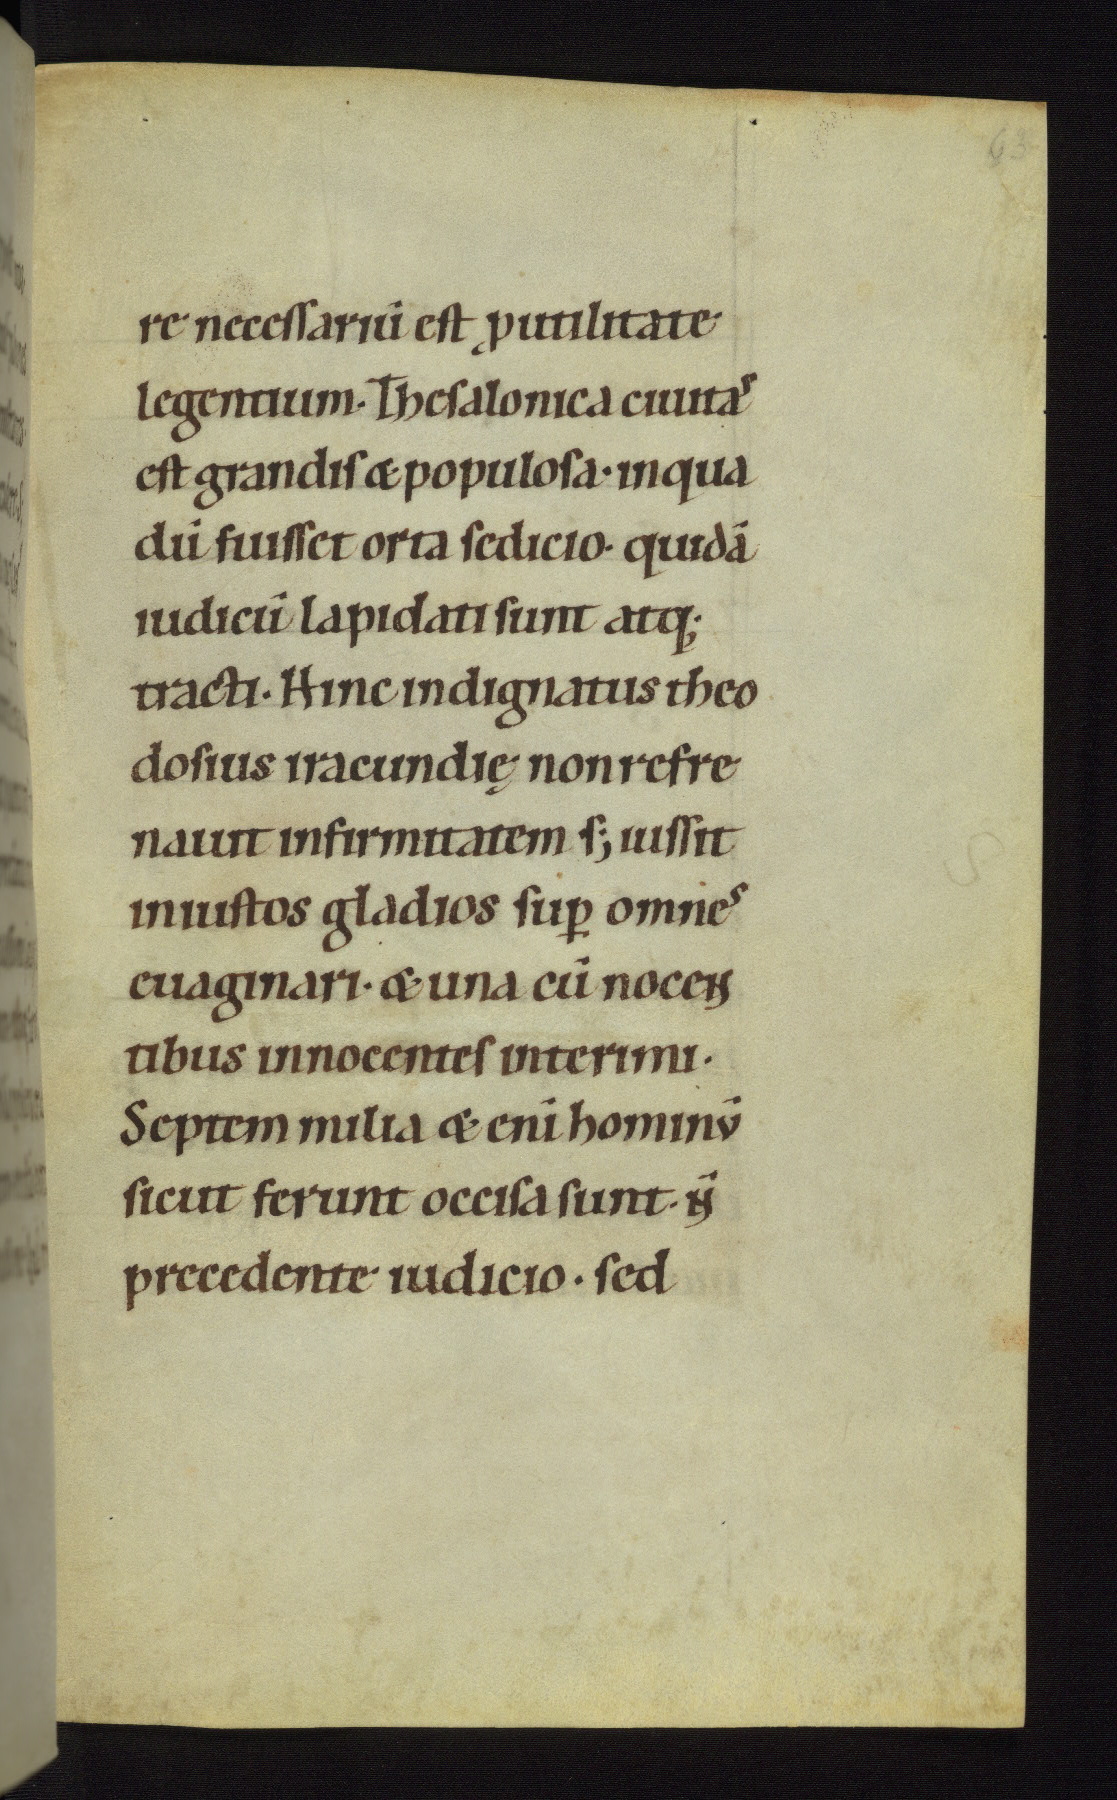 63
re necessariū est ꝓ utilitate
legentium. Thesalonica ciuitas
est grandis & populosa. in qua
dū fuisset orta sedicio. quidā
iudicū lapidati sunt atq;
tracti. Hinc indignatus theo
dosius iracundię non refre
nauit infirmitatem s; iussit
iniustos gladios suꝑ omnes
euaginari. & una cū nocen
tibus innocentes interimi.
Septem milia & enī hominū
sicut ferunt occisa sunt. n̄
precedente iudicio. sed